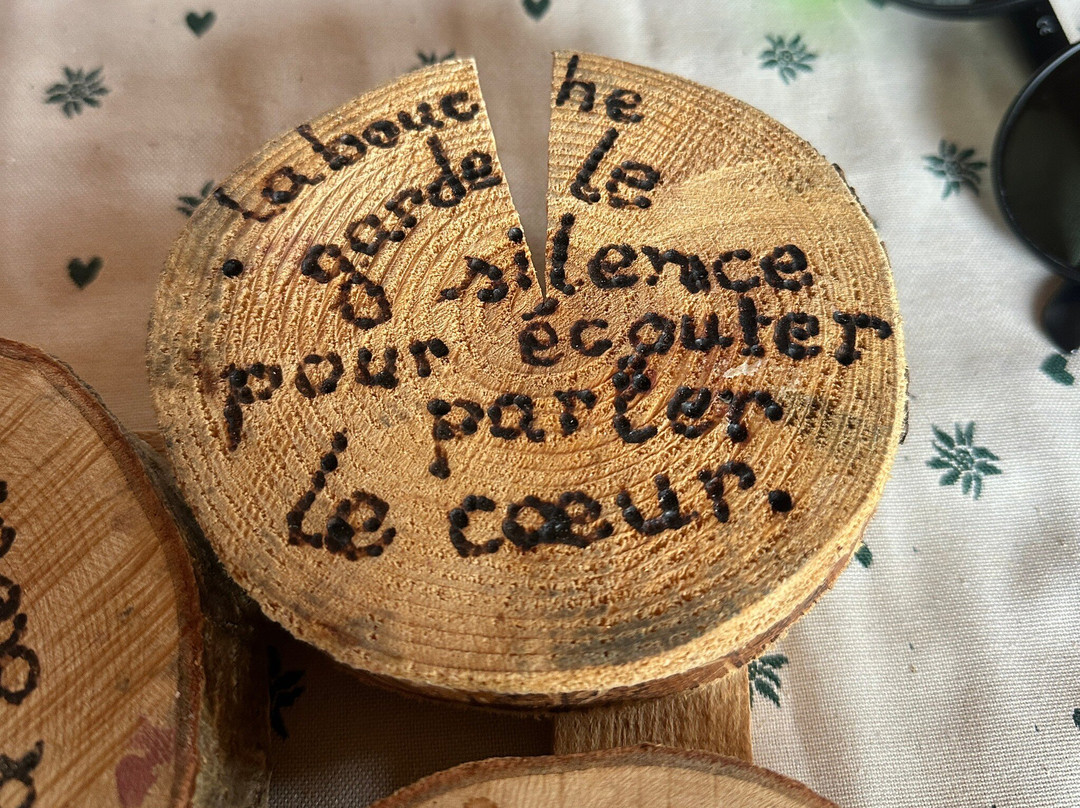 La bouche
garde le
silence
pour écouter
parler
le cœur.